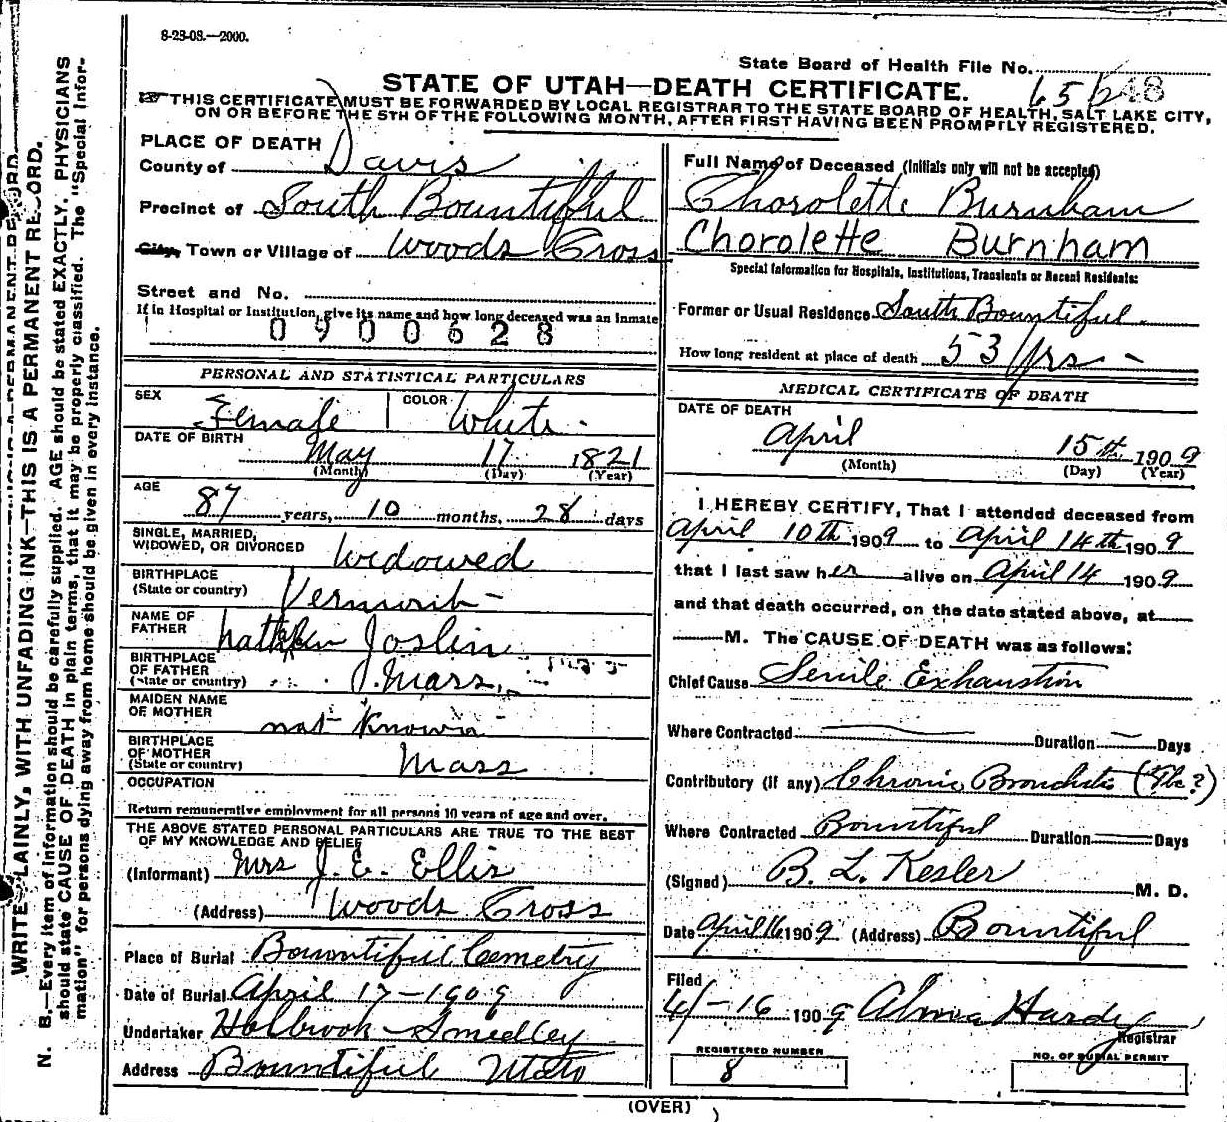 8-23-08.—2000.
State Board of Health File No. 65
48
STATE OF UTAH—DEATH CERTIFICATE.
THIS CERTIFICATE MUST BE FORWARDED BY LOCAL REGISTRAR TO THE STATE BOARD OF HEALTH, SALT LAKE CITY,
ON OR BEFORE THE 5TH OF THE FOLLOWING MONTH, AFTER FIRST HAVING BEEN PROMPTLY REGISTERED.
WRITE PLAINLY, WITH UNFADING INK—THIS IS A PERMANENT RECORD.
N. B.—Every item of information should be carefully supplied. AGE should be stated EXACTLY. PHYSICIANS
should state CAUSE OF DEATH in plain terms, that it may be properly classified. The "Special Infor-
mation" for persons dying away from home should be given in every instance.
PLACE OF DEATH
County of Davis
Precinct of South Bountiful
City, Town or Village of Woods Cross
Street and No.
If in Hospital or Institution, give its name and how long deceased was an inmate
0900628
PERSONAL AND STATISTICAL PARTICULARS
SEX Female COLOR White
DATE OF BIRTH May 17 1821
(Month) (Day) (Year)
AGE 87 years, 10 months, 28 days
SINGLE, MARRIED,
WIDOWED, OR DIVORCED Widowed
BIRTHPLACE
(State or country) Vermont
NAME OF
FATHER Joslin
BIRTHPLACE
OF FATHER
(State or country) Mass.
MAIDEN NAME
OF MOTHER not known
BIRTHPLACE
OF MOTHER
(State or country) Mass
OCCUPATION
Return remunerative employment for all persons 10 years of age and over.
THE ABOVE STATED PERSONAL PARTICULARS ARE TRUE TO THE BEST
OF MY KNOWLEDGE AND BELIEF
(Informant) Mrs J. E. Ellis
(Address) Woods Cross
Place of Burial Bountiful Cemetry
Date of Burial April 17-1909
Undertaker Holbrook - Smedley
Address Bountiful Utah
Full Name of Deceased (Initials only will not be accepted)
Chorolette Burnham
Chorolette Burnham
Special Information for Hospitals, Institutions, Transients or Recent Residents:
Former or Usual Residence South Bountiful
How long resident at place of death 53 yrs -
MEDICAL CERTIFICATE OF DEATH
DATE OF DEATH
April 15th 1909
(Month) (Day) (Year)
I HEREBY CERTIFY, That I attended deceased from
April 10th 1909 to April 14th 1909
that I last saw her alive on April 14 1909
and that death occurred, on the date stated above, at
M. The CAUSE OF DEATH was as follows:
Chief Cause Senile Exhaustion
Where Contracted Duration Days
Contributory (if any) Chronic Bronchitis (Tbc?)
Where Contracted Bountiful Duration Days
(Signed) B. L. Kesler M. D.
Date April 16 1909 (Address) Bountiful
Filed
4-16 1909 Alma Hardy
Registrar
REGISTERED NUMBER
8
NO. OF BURIAL PERMIT
(OVER)